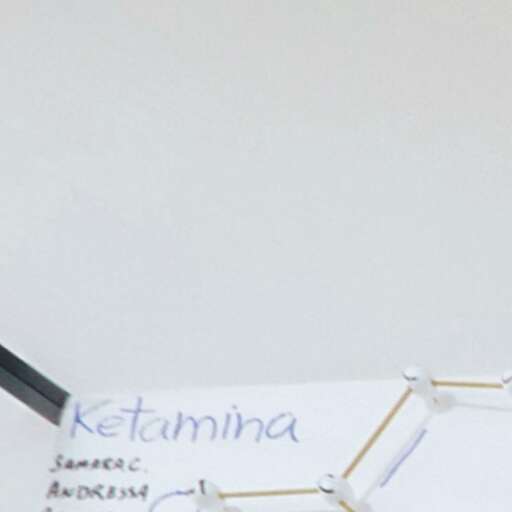 Ketamina
SAMARA C.
ANDRESSA